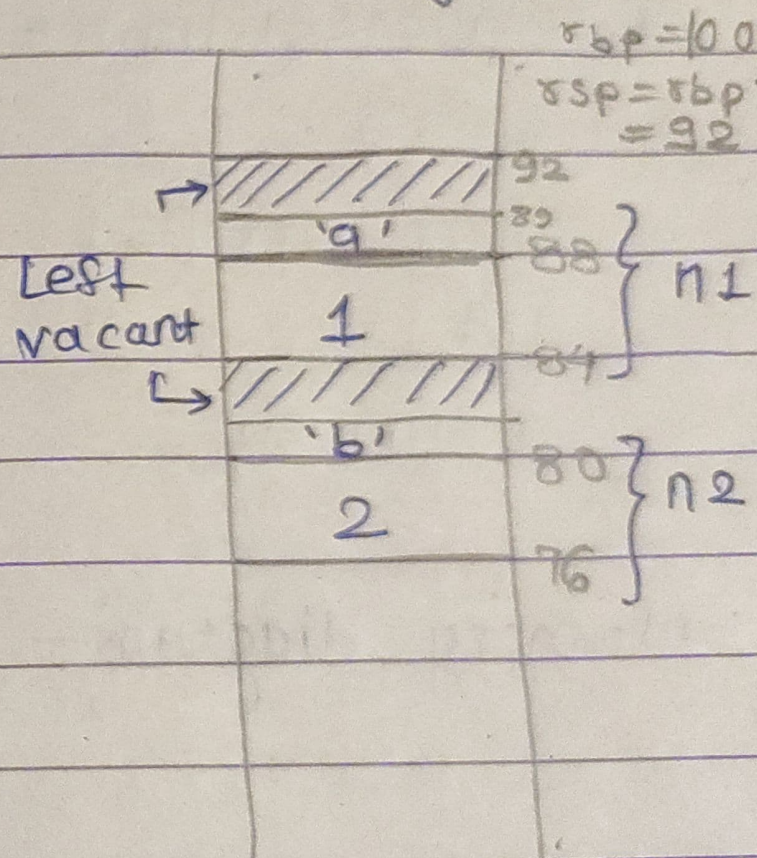 rbp=100
rsp=rbp
=92
92
89
'a'
88
n1
Left
vacant
1
84
'b'
80
n2
2
76